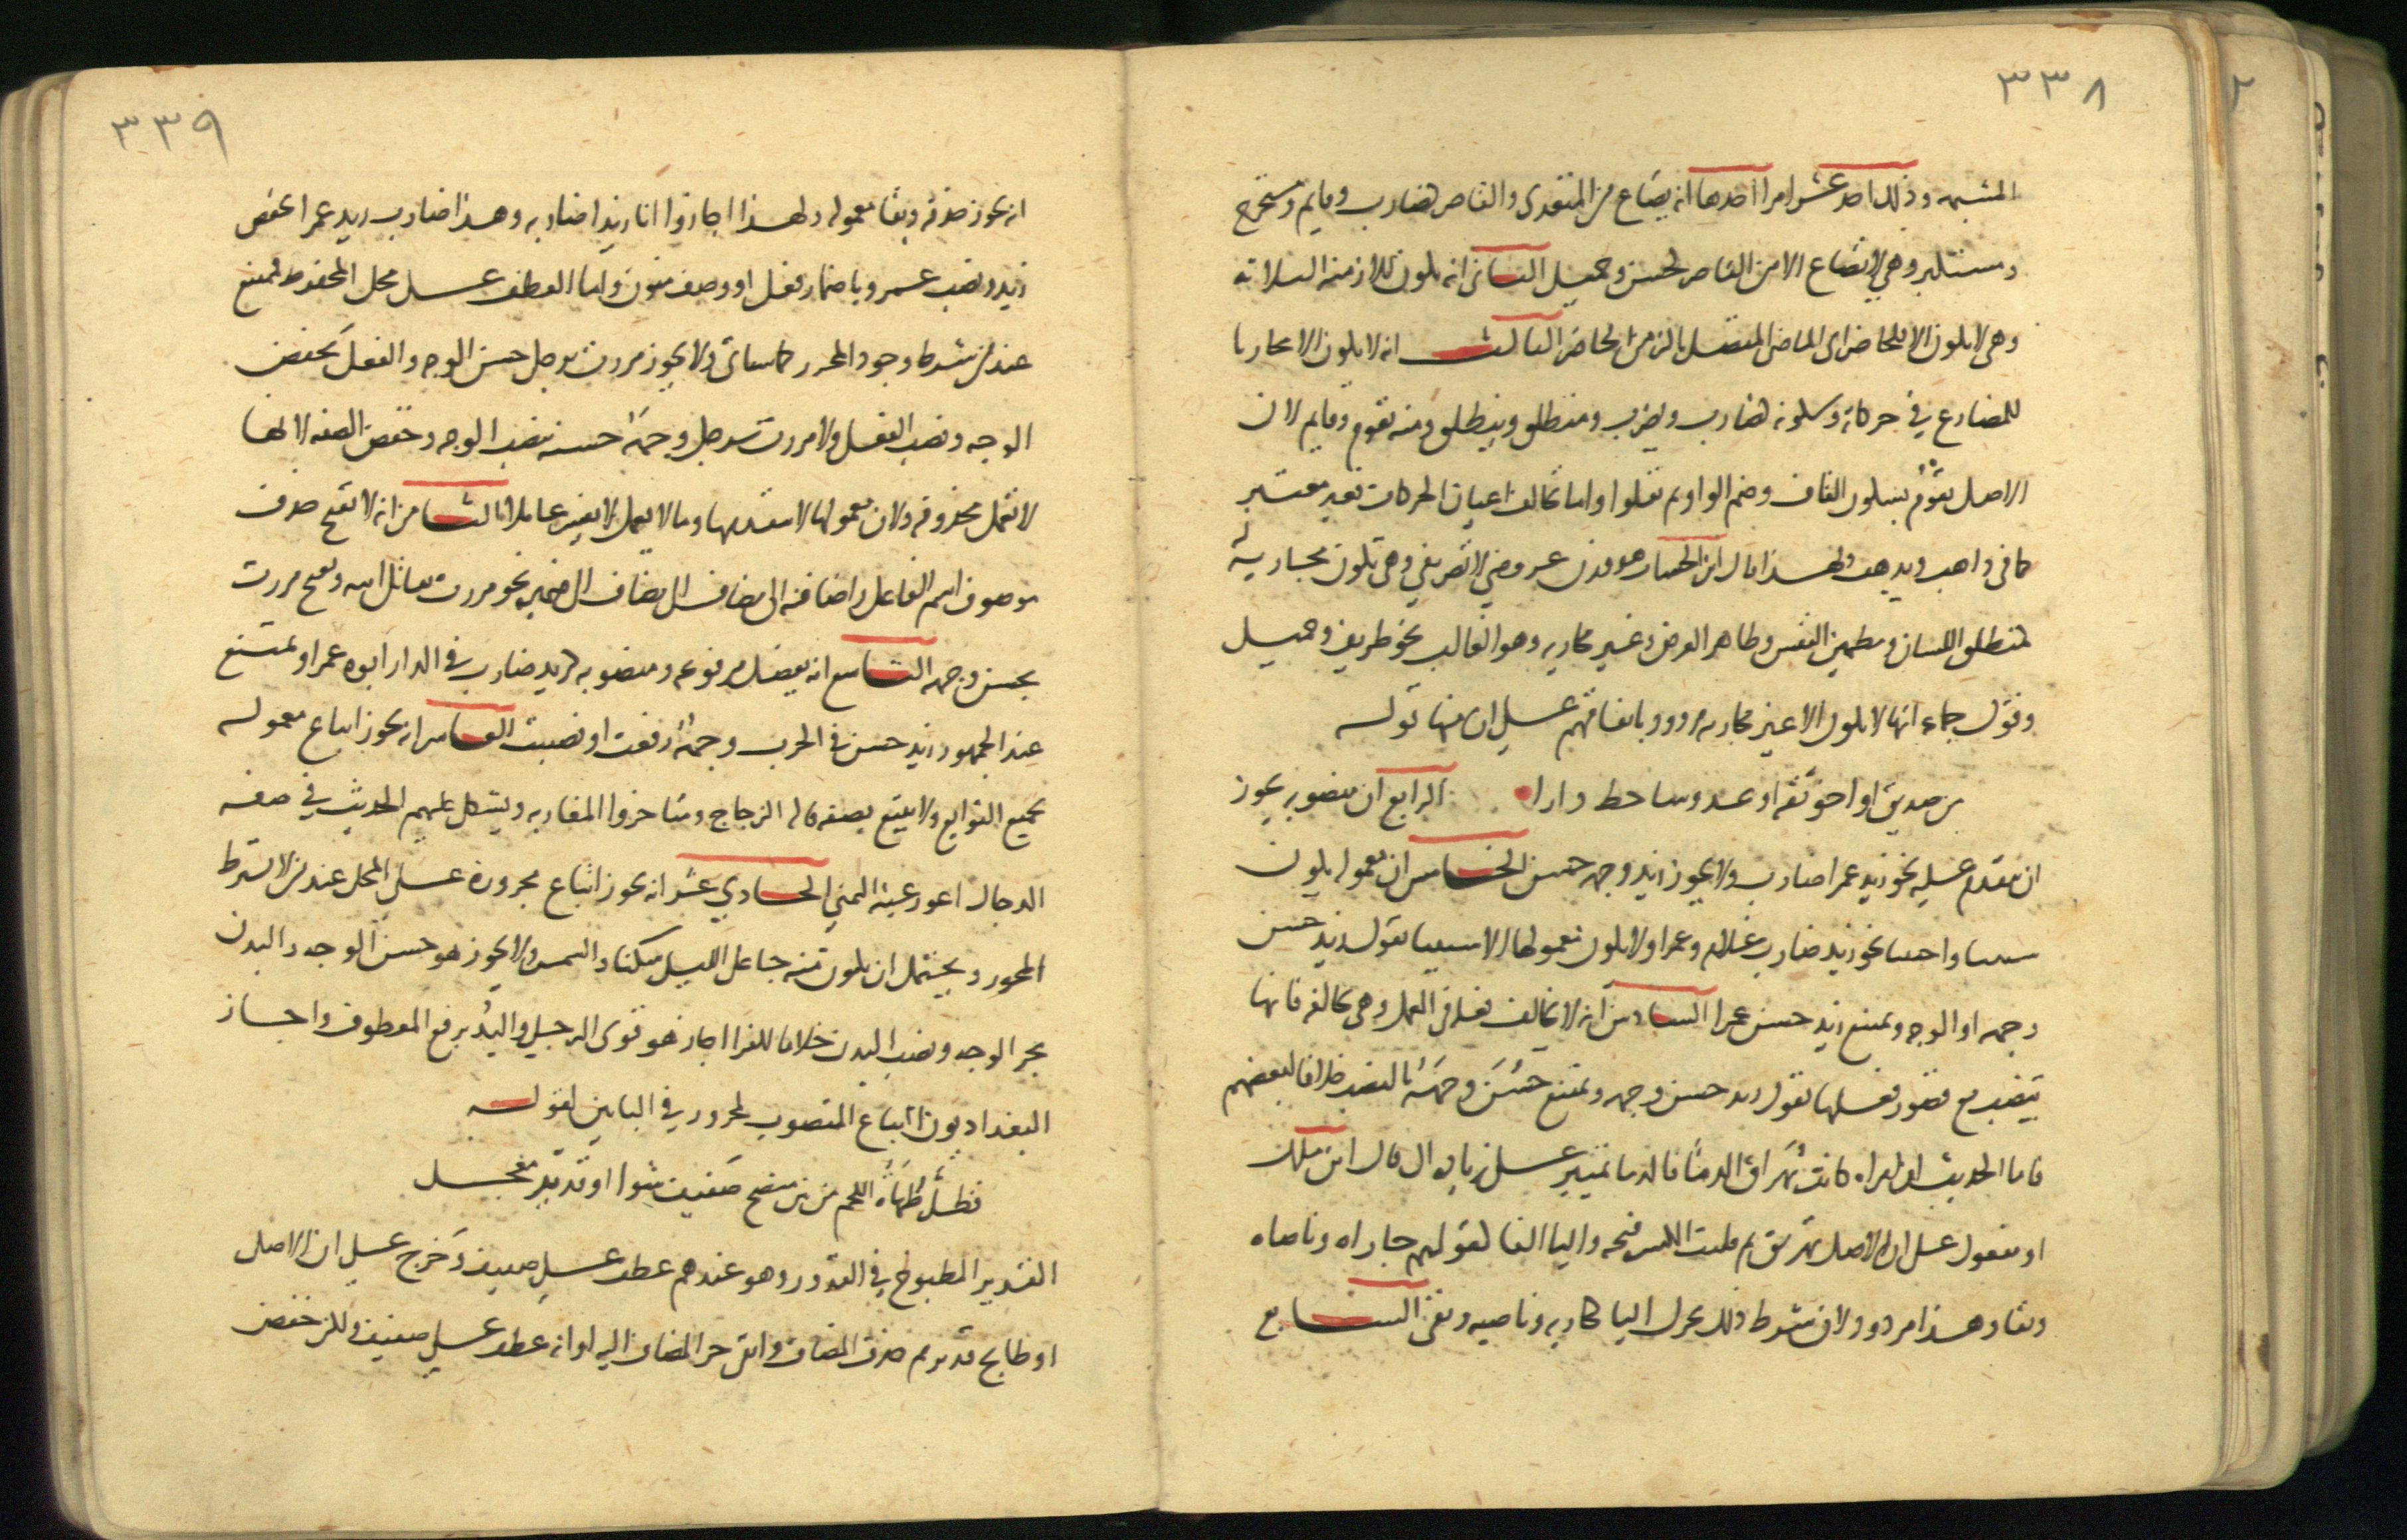 ٣٣٨
المشبهة وذلك احد عشر امرا احدها انه يصاغ من المتعدى والقاصر كضارب وقايم ومستخرج
ومستكبر وهي لا تصاغ الا من القاصر كحسن وجميل الثانى انه يكون للازمنة الثلاثة
وهى لا تكون الا للحاضر اى الماضى المتصل بالزمن الحاضر الثالث انه لا يكون الا مجاريا
للمضارع في حركاته وسكونه كضارب ويضرب ومنطلق وينطلق ومنه يقوم وقايم لان
الاصل يقوُم بسكون القاف وضم الواو ثم نقلوا واما تخالف اعيان الحركات فغير معتبر
كما فى ذاهب ويذهب ولهذا قال ابن الخشاب هو وزن عروضي لا تصريفي وهى تكون مجارية له
كمنطلق اللسان ومطمين النفس وطاهر العرض وغير مجارية وهو الغالب نحو ظريف وجميل
وقول جماعة انها لا تكون الا غير مجارية مردود باتفاقهم على ان منها قوله
من صديق او اخي ثقة او عدو شاحط دارا الرابع ان منصوبه يجوز
ان يتقدم عليه نحو زيد عمرا ضارب ولا يجوز زيد وجهه حسن الخامس ان معموله يكون
سببيا واجنبيا نحو زيد ضارب غلامه وعمرا ولا يكون معمولها الا سببيا تقول زيد حسن
وجهه او الوجه ويمتنع زيد حسن عمرا السادس انه لا يخالف فعله فى العمل وهى تخالفه فانها
تنصب مع قصور فعلها تقول زيد حسن وجهه ويمتنع حَسُنَ وجهَه بالنصب خلافا لبعضهم
فاما الحديث ان امراة كانت تُهَراق الدما فالدما تمييز على زيادة ال قال ابن ملك
او مفعول على ان الاصل تهريق ثم قلبت الكسرة فتحة واليا الفا كقولهم جاراه وناصاه
وبقا وهذا مردود لان شرط ذلك تحرك اليا كجارية وناصية وبقى السابع
٣٣٩
انه يجوز حذفه وبقا معموله ولهذا اجازوا انا زيدا ضاربه وهذا ضارب زيد وعمرا بخفض
زيد ونصب عمرو باضمار فعل او وصف منون واما العطف على محل المخفوض فممتنع
عند من شرط وجود المحرز كما سياتى ولا يجوز مررت برجل حسن الوجه والفعل بخفض
الوجه ونصب الفعل ولا مررت برجل وجهَه حسنه بنصب الوجه وخفض الصفة لانها
لا تعمل محذوفة ولان معمولها لا يتقدمها وما لا يعمل لا يفسر عاملا الثامن انه لا يقبح حذف
موصوف اسم الفاعل واضافته الى مضاف الى مضاف الى ضميره نحو مررت بقاتل ابيه ويقبح مررت
بحسن وجهه التاسع انه يفصل مرفوعه ومنصوبه كزيد ضارب فى الدار ابوه عمرا ويمتنع
عند الجمهور زيد حسن فى الحرب وجهه رفعت او نصبت العاشر انه يجوز اتباع معموله
بجميع التوابع ولا يتبع بصفة قاله الزجاج ومتاخروا المغاربة ويشكل عليهم الحديث في صفة
الدجال اعور عينه اليمنى الحادي عشر انه يجوز اتباع مجروره على المحل عند من لا يشترط
المحرز ويحتمل ان يكون منه جاعل الليل سكنا والشمس ولا يجوز هو حسن الوجه والبدن
بجر الوجه ونصب البدن خلافا للفرا اجاز هو قوى الرجل واليدُ برفع المعطوف واجاز
البغداديون اتباع المنصوب بمجرور في البابين لقوله
فظلّ طهاةُ اللحم من بين منضج صفيف شوا او قدير معجل
القدير المطبوخ في القدور وهو عندهم عطف على صفيف وخرج على ان الاصل
او طابخ قدير ثم حذف المضاف وابقى جر المضاف اليه او انه عطف على صفيف ولكن خفض